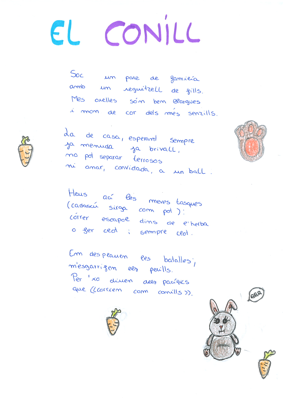 EL CONILL
Sóc un pare de família
amb un reguitzell de fills.
Mes orelles són ben llargues
i mon de cor dels més senzills.
La de casa, esperant sempre
ja menuda ja brivall.
no pot separar
ni anar, convidada, a un ball.
Heus ací les meves tasques
(cadascú sirga com pot):
córrer escapat dins de l'herba
o fer ced i sempre ced.
Em despenen les batalles,
m'esgarrifen els perills.
Per 'xo diuen dels
que ((corren com conills)).